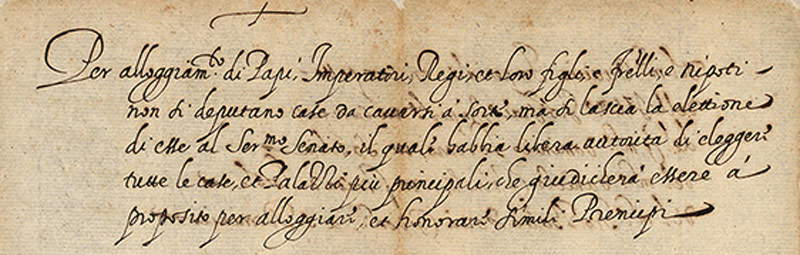 Per alloggiam.to di Papi, Imperatori, Regi, et loro figli, e fr'elli, e nipoti -
non si deputano case da cavarsi à sorte, mà si lascia la elettione
di esse al Ser.mo Senato, il quale habbia libera autorità di elegger
tutte le case, et Palazzi più principali, che giudicherà essere à
proposito per alloggiare, et honorare simili Prencipi